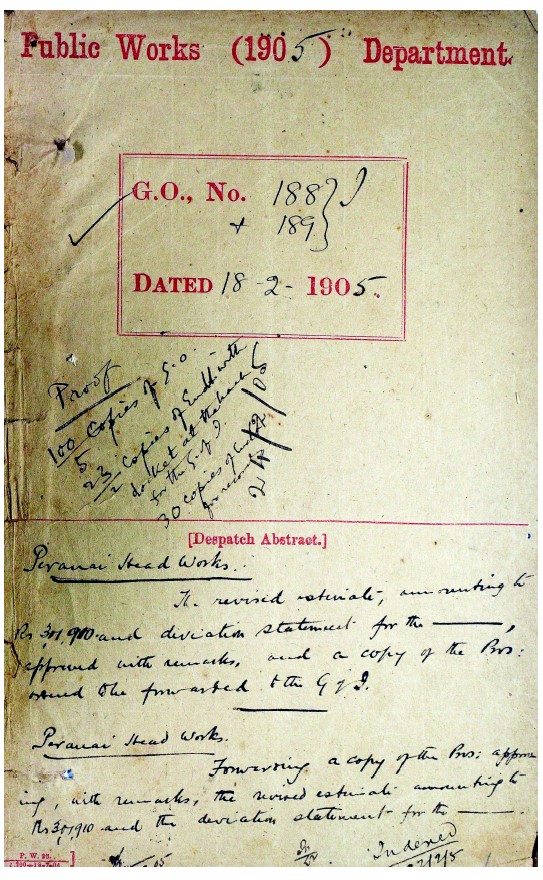 Public Works (1905) Department.
G.O., No. 188 } I
+ 189 }
DATED 18-2-1905.
Proof
100 Copies of G.O.
5
23 Copies of Endt. with
docket at the back
for the G. of I.
30 copies of
for record
[Despatch Abstract.]
Peranai Head Works.
The revised estimate, amounting to
Rs 301,910 and deviation statement for the ———,
approved with remarks, and a copy of the Pros:
ordered to be forwarded to the G of I.
Peranai Head Works.
Forwarding a copy of the Pros: approv
ing, with remarks, the revised estimate amounting to
Rs 301,910 and the deviation statement for the ———.
Indexed
P. W. 25.